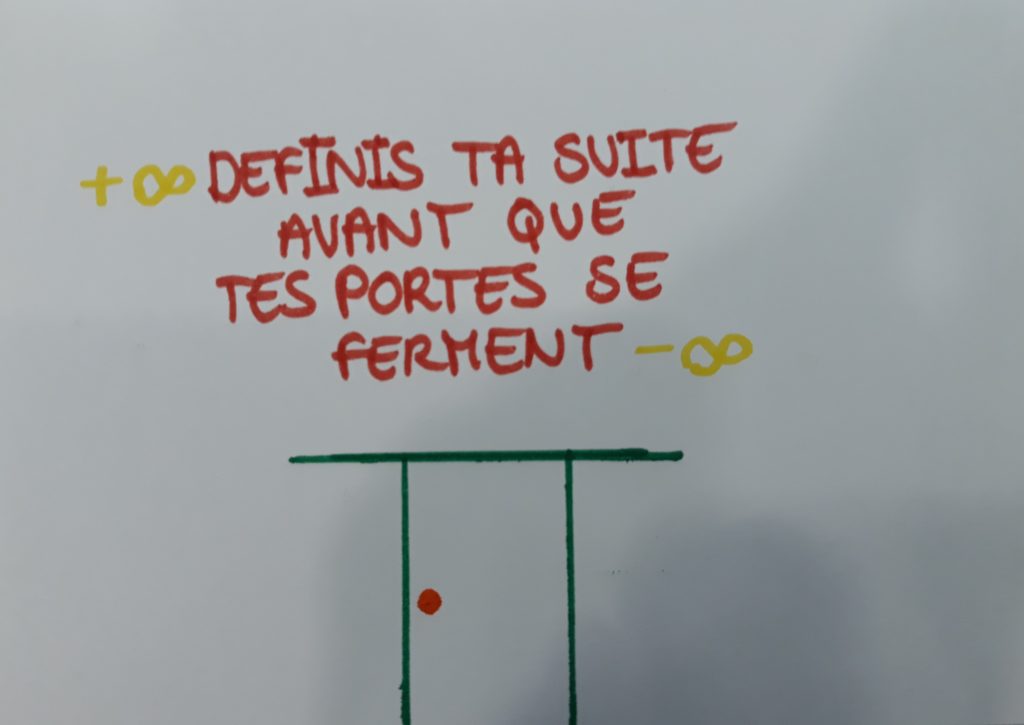 +∞ DEFINIS TA SUITE
AVANT QUE
TES PORTES SE
FERMENT -∞